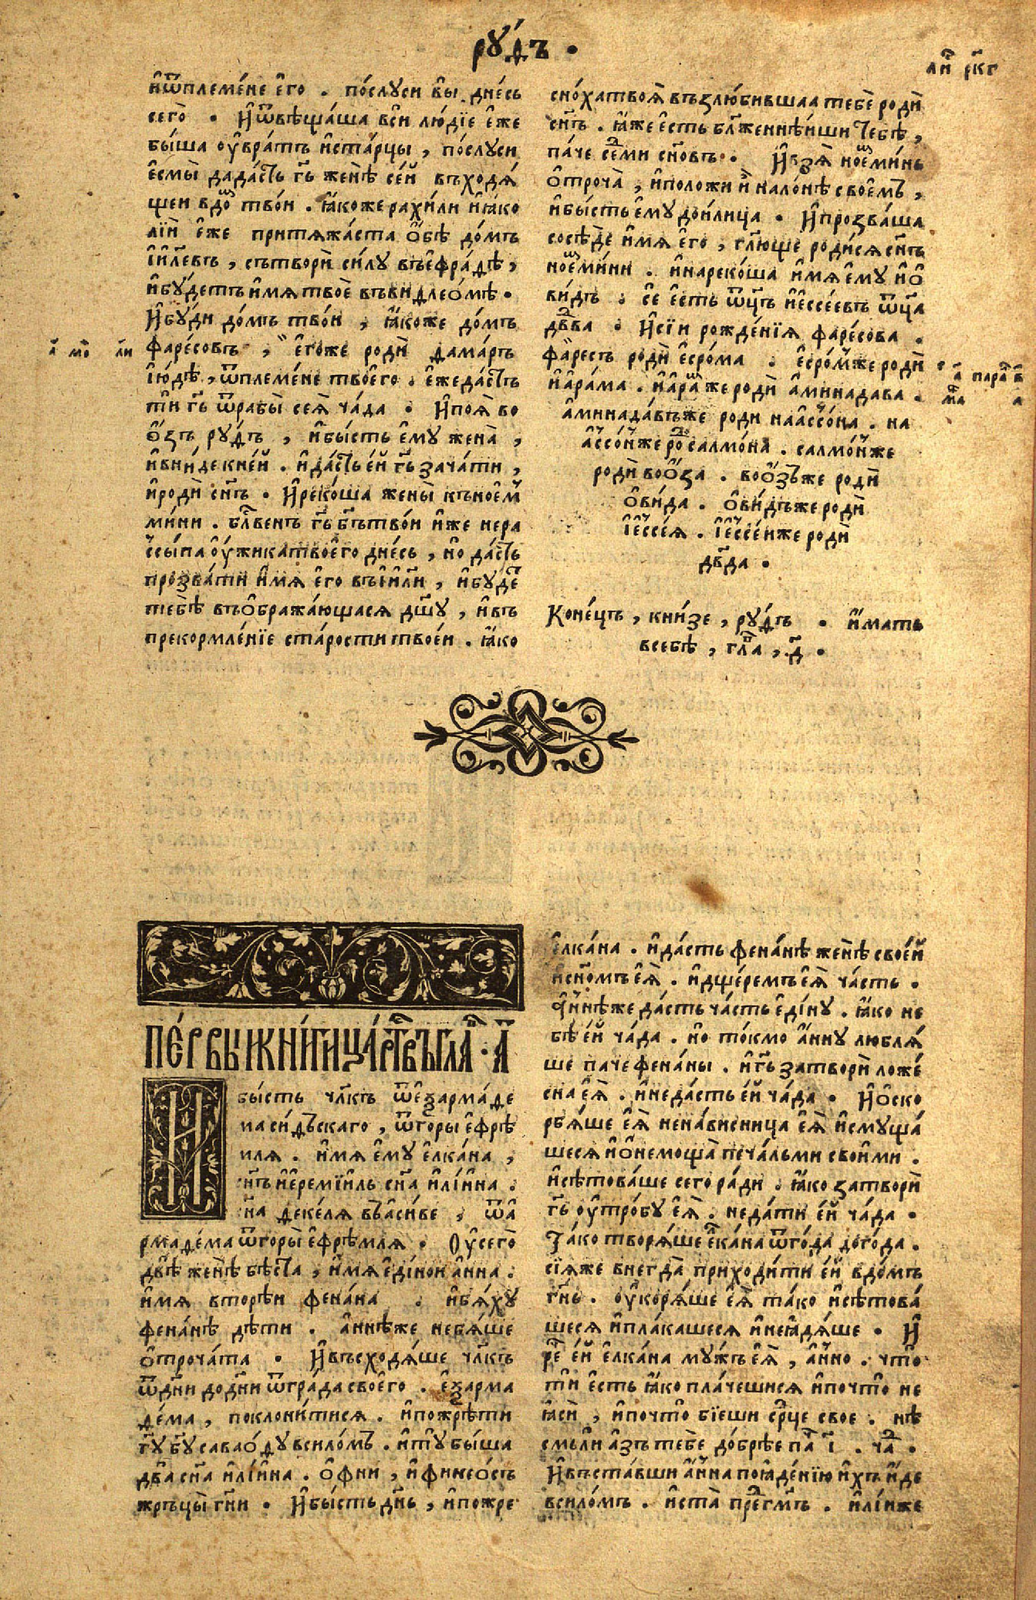 руⷣ҇ъ .
лиⷭ҇ рк҃г
иѿплемене его . послуси вы днесь
сего . Иѿвѣщаша вси людїе еже
быша оувратъ истарцы , послуси
есмы дадастъ гь женѣ сей въходѧ
щеи вдоⷨ твои . ꙗкоже рахили иꙗко
лїи еже притѧжаста ѻбѣ домъ
їилевъ , сътвори силу въефрадѣ ,
ибудетъ имѧ твое въвидлеѻмѣ .
Ибуди домъ твои , ꙗкоже домъ
фаресовъ , егоже роди дамаръ
їюдѣ , ѿплемене твоего . ежедастъ
ти гь ѿрабы сеѧ чада . Ипоѧ во
ѻзъ руⷣъ , ибысть ему жена ,
ивниде кней . идастъ ей гь зачати ,
ироди снъ . Ирекоша жены къноеⷨ
мини . блвенъ гь бгътвои иже нера
ссыпа оужикатвоего днесь , но дастъ
прозвати имѧ его въеили , ибудеⷮ
тебѣ въѻбражающасѧ дшу , ивъ
прекормленїе старости твоеи . ꙗко
а мѡ ли
снохатвоѧ възлюбившаа тебе роди
снъ . ꙗже есть блженнѣиши тебѣ ,
паче седми сновъ . Ивзѧ ноеминь
ѻтроча , иположи и налонѣ своемъ ,
ибысть ему доилица . Ипрозваша
сосѣде имѧ его , глюще родисѧ снъ
ноемини . инарекоша имѧ ему иѻ
видъ . се есть ѿцъ иессеевъ ѿца
двда . Исїи рожденїѧ фаресова .
фаресъ роди есрома . есромже роди
иарама . иарамже роди аминадава .
аминадавъже роди наассона . на
ассонже роⷣ салмона . салмонже
роди воѻза . воѻзъже роди
ѻвида . ѻвидъже роди
їессеѧ . їессеиже роди
двда .
Конецъ , книзе , руⷣъ . имать
всебѣ , глⷡа , д .
Первыѧ книги царствъ глⷡа . а
И бысть члкъ ѿехармаде
масидъскаго , ѿгоры ефрѣ
мля . имѧ ему елкана ,
снъ иеремїиль сна илїина .
сна декелѧ въасиве , ѿа
рмадема ѿгоры ефрѣмлѧ . Оусего
двѣ женѣ бѣста , имѧ единои анна .
имѧ вторѣи фенана . ибѧху
фенанѣ дѣти . аннѣже небѧше
ѻтрочата . Ивъсходѧше члкъ
ѿдни додни ѿграда своего . ехарма
дема , поклонитисѧ . ипожрѣти
гу бгу саваоду всилѡмъ . иту быша
два сна илїина . ѻфни , ифинеѻсъ
жръцы гни . Ибысть днь , ипожре
елкана . идастъ фенанѣ женѣ своей
исномъ еѧ . идщеремъ еѧ часть .
аннѣже дасть часть едину . ꙗко не
бѣ ей чада . но токмо анну люблѧ
ше паче фенаны . игь затвори ложе
сна еѧ . инедасть ей чада . Иѻско
рблѧше еѧ ненависница еѧ исмуща
шесѧ иѻнемоща печальми своими .
исѣтоваше сего ради . ꙗко затвори
гь оутробу еѧ . недати ей чада .
Тако творѧше елкана ѿгода догода .
сїѧже внегда приходити ей вдомъ
гнь . оукорѧше еѧ тако исѣтова
шесѧ иплакашесѧ инеꙗдѧше . И
реⷱ ей елкана мужъ еѧ , анно . что
ти есть ꙗко плачешисѧ ипочто не
ꙗси , ипочто бїеши срце свое . нѣ
смьли азъ тебе добрѣе паⷱ ї . чаⷣ .
Ивъставши анна поꙗденїю ихъ иде
всилѡмъ . иста преⷣ гмъ . илїиже